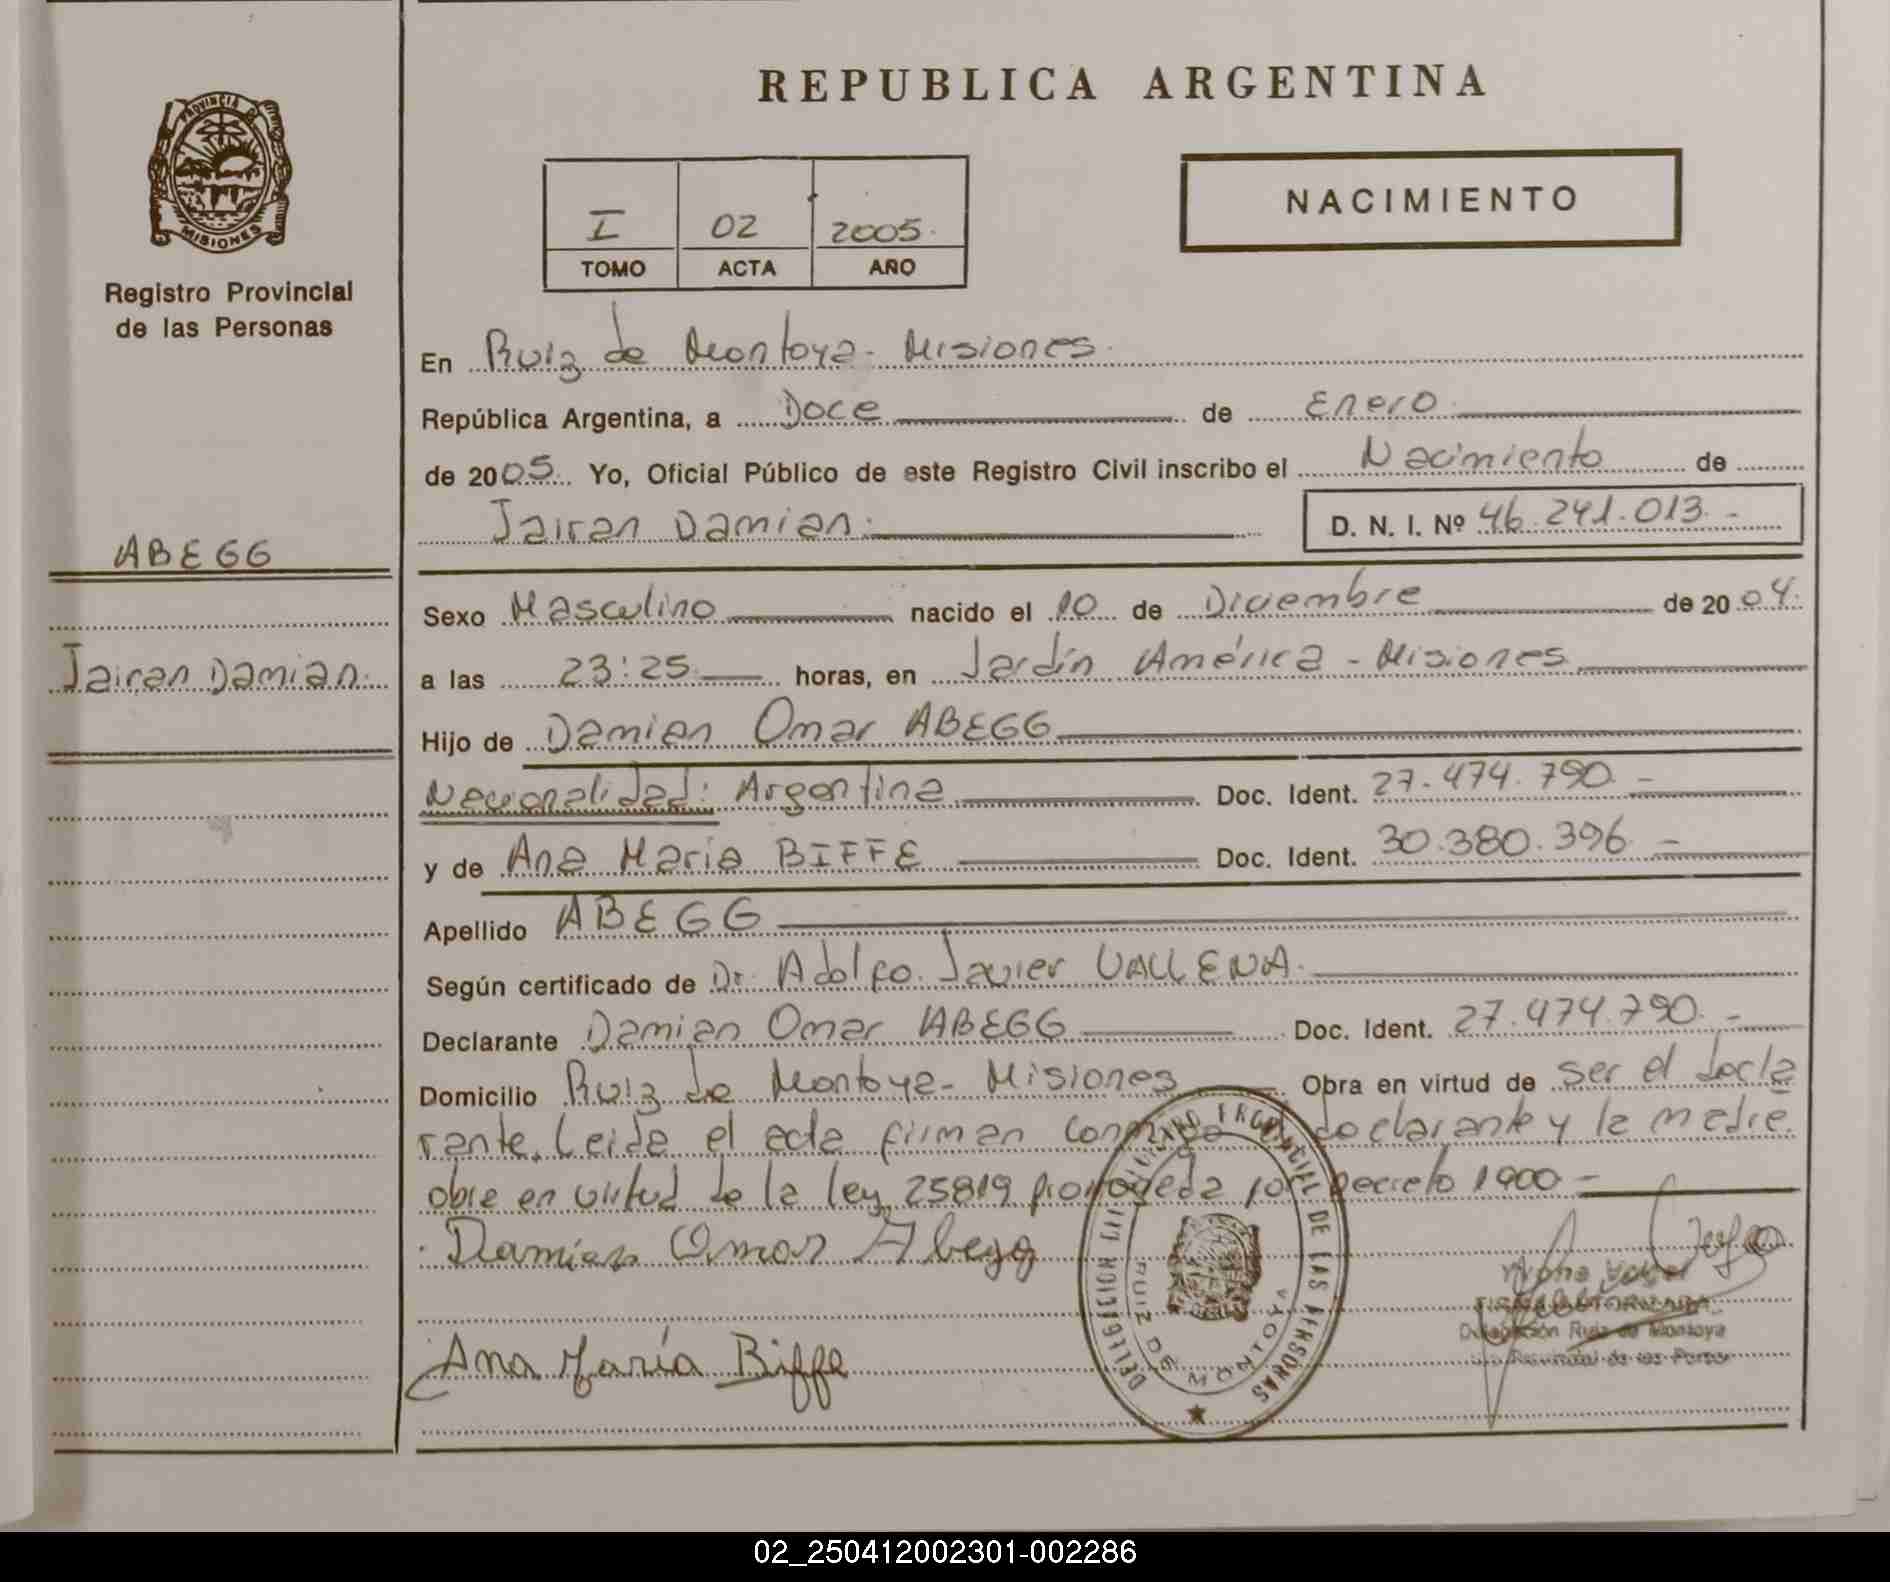 REPUBLICA ARGENTINA
PROVINCIA DE
MISIONES
Registro Provincial
de las Personas
I 02 2005.
TOMO ACTA AÑO
NACIMIENTO
En Ruiz de Montoya - Misiones.
República Argentina, a Doce de Enero
de 2005. Yo, Oficial Público de este Registro Civil inscribo el Nacimiento de
Jairan Damian. D. N. I. Nº 46.241.013. -
ABEGG
Jairan Damian.
Sexo Masculino nacido el 10 de Diciembre de 2004.
a las 23:25 horas, en Jardín América - Misiones
Hijo de Damian Omar ABEGG
Nacionalidad: Argentina Doc. Ident. 27.474.790. -
y de Ana Maria BIFFE Doc. Ident. 30.380.396 -
Apellido ABEGG
Según certificado de Dr. Adolfo Javier VALLENA.
Declarante Damian Omar ABEGG Doc. Ident. 27.474.790. -
Domicilio Ruiz de Montoya - Misiones Obra en virtud de ser el decla
rante. Leida el acta firman conmigo declarante y la madre.
obra en virtud de la ley 25819 prorrogada por Decreto 1900 -
Damian Omar Abegg
Ana María Biffe
DELEGACION REGISTRO PROVINCIAL DE LAS PERSONAS
RUIZ DE MONTOYA
FIRMA AUTORIZADA
Delegación Ruiz de Montoya
Provincial de las Person
02_250412002301-002286